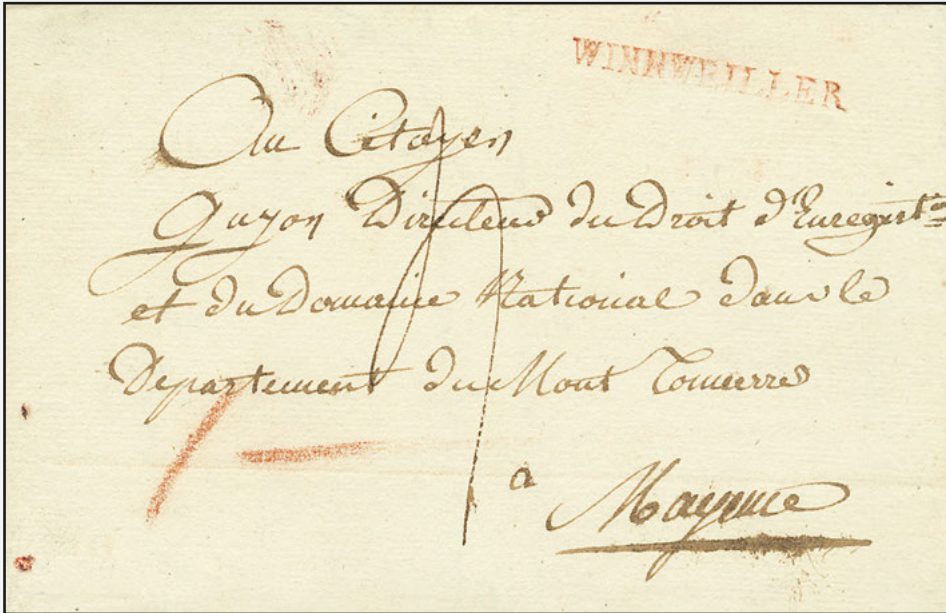 WINNWEILLER
Au Citoyen
Guyon Directeur du Droit d'Enregistre
et du Domaine National dans le
Departement du Mont Tonnerre
a
Mayence